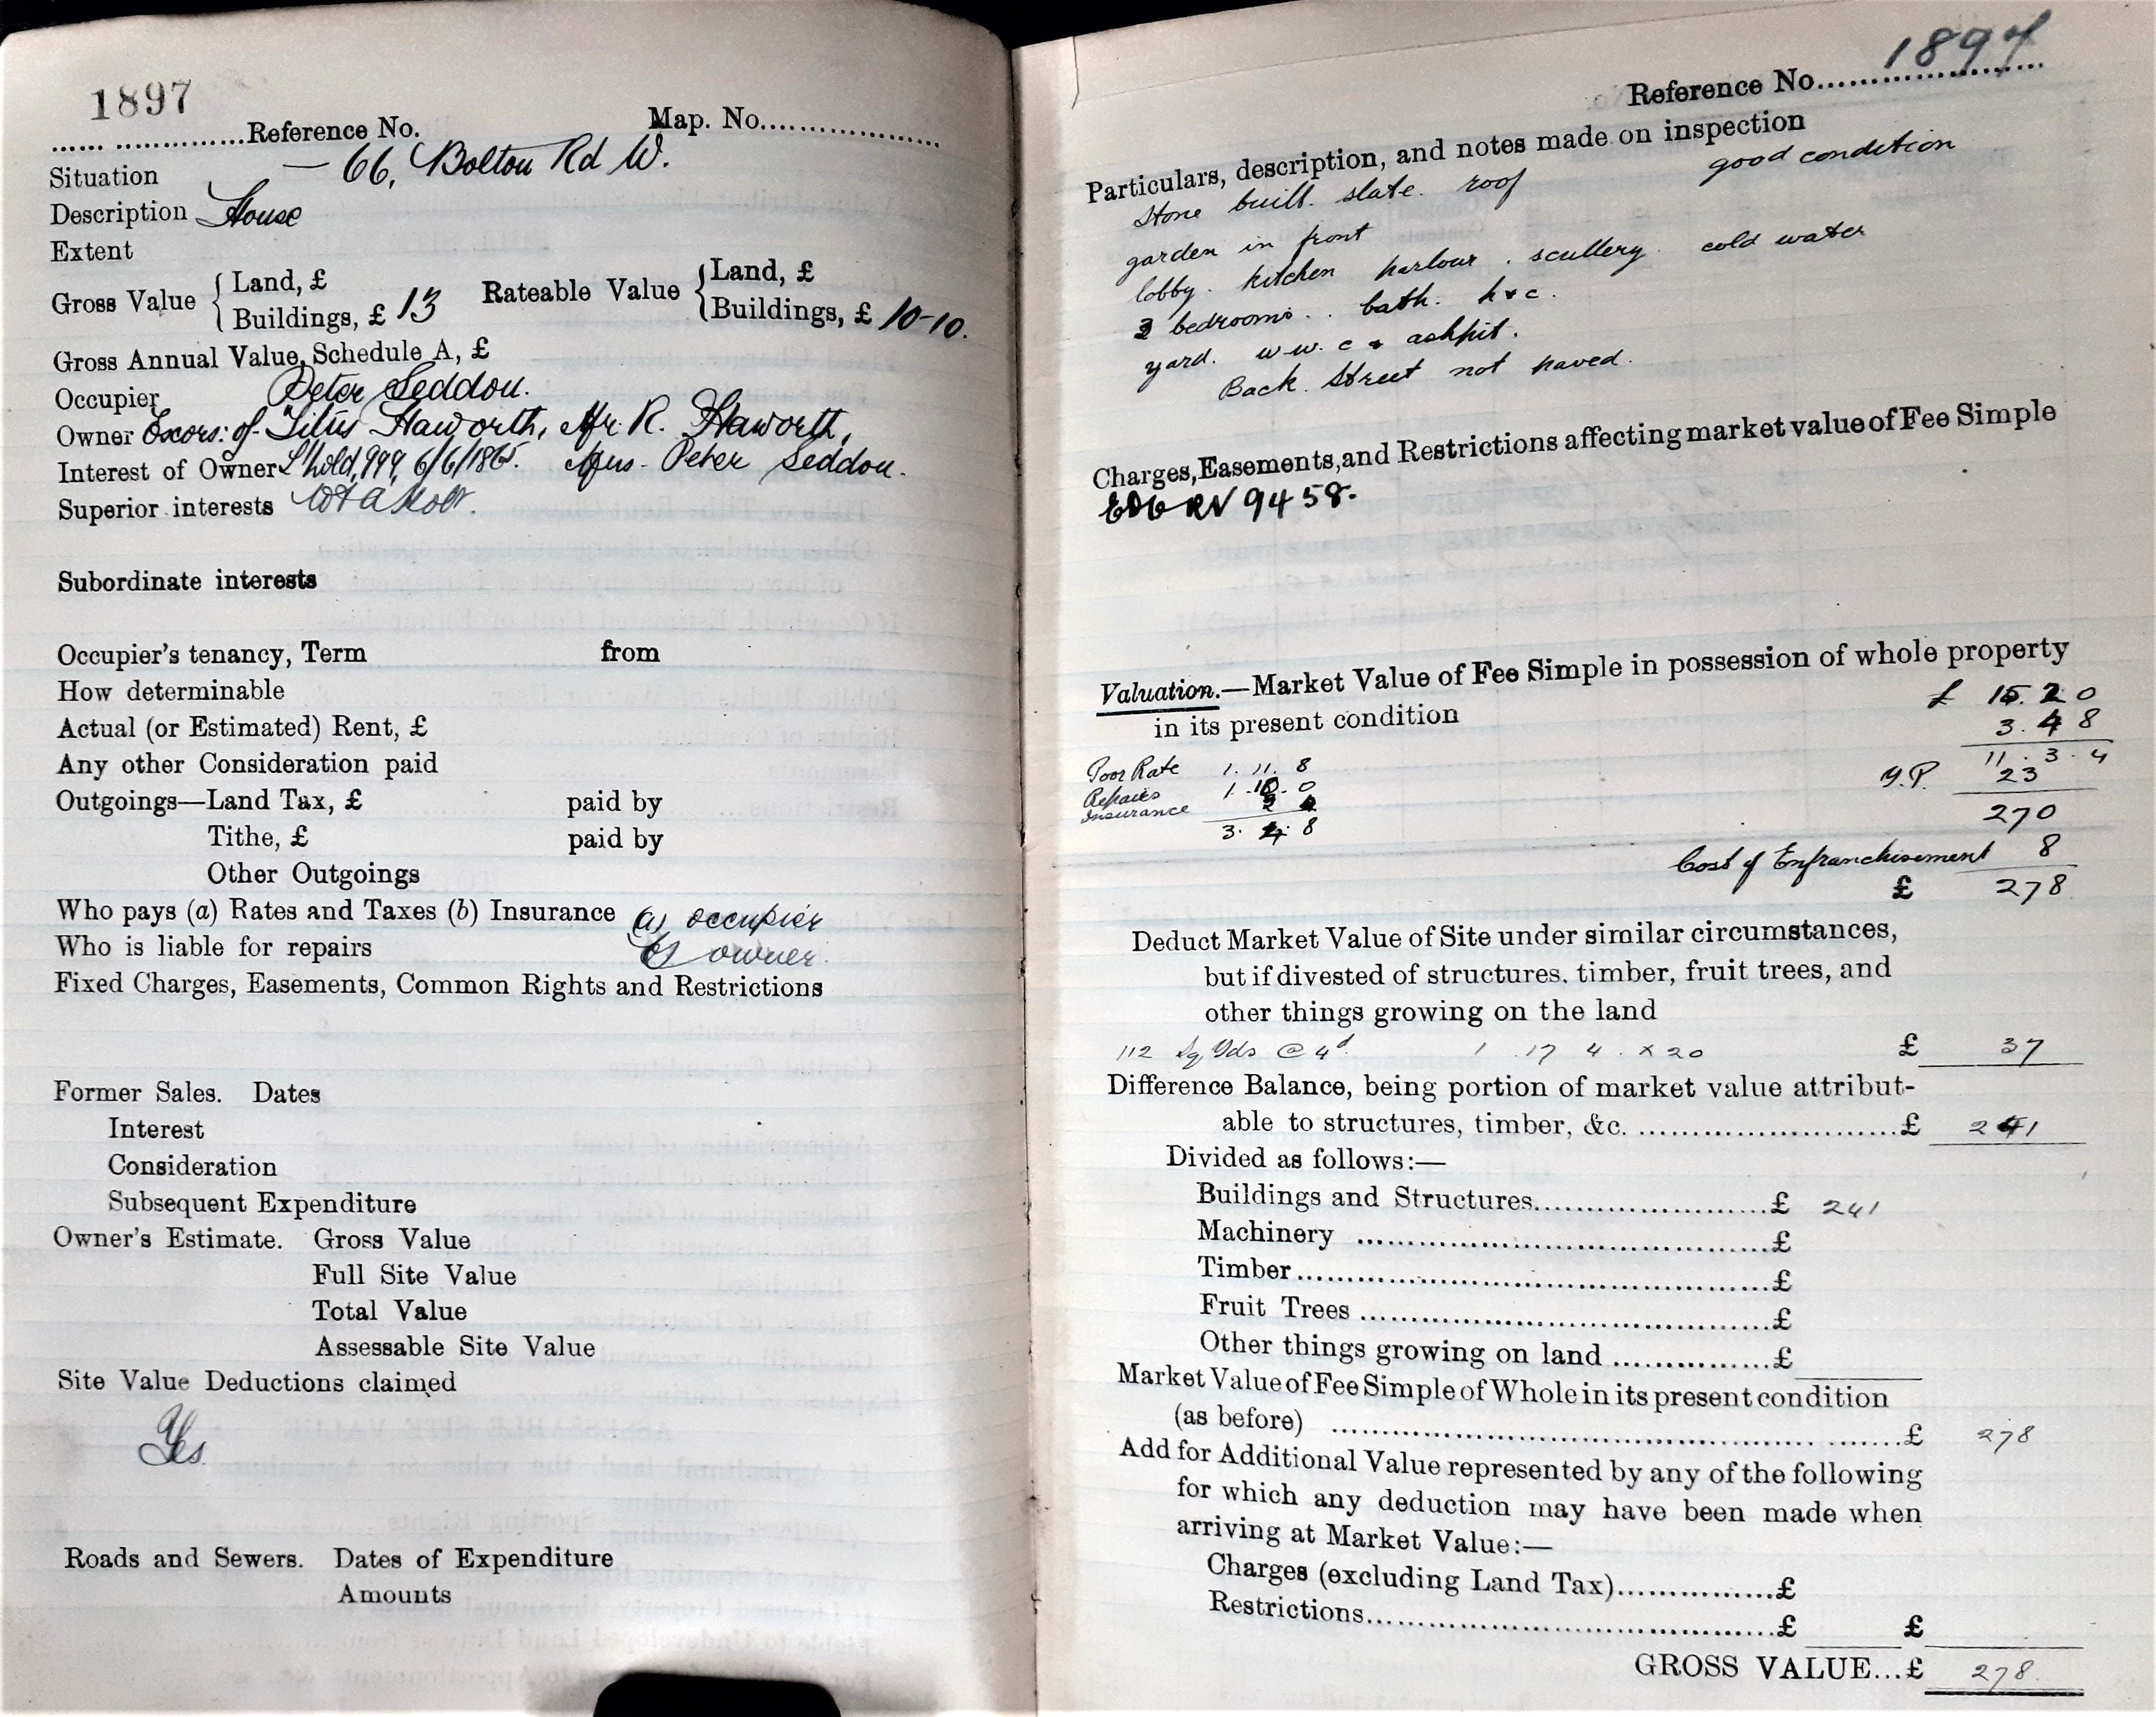 1897
...... ...............Reference No. Map. No...................
Situation — 66, Bolton Rd W.
Description House
Extent
Gross Value { Land, £ Rateable Value { Land, £
Buildings, £ 13 Buildings, £ 10-10.
Gross Annual Value, Schedule A, £
Occupier Peter Seddon.
Owner Excors: of Titus Haworth, Mr. R. Haworth,
Interest of Owner L'hold, 999, 6/6/1865. Mrs. Peter Seddon.
Superior interests
Subordinate interests
Occupier's tenancy, Term from
How determinable
Actual (or Estimated) Rent, £
Any other Consideration paid
Outgoings—Land Tax, £ paid by
Tithe, £ paid by
Other Outgoings
Who pays (a) Rates and Taxes (b) Insurance (a) occupier
Who is liable for repairs (b) owner.
Fixed Charges, Easements, Common Rights and Restrictions
Former Sales. Dates
Interest
Consideration
Subsequent Expenditure
Owner's Estimate. Gross Value
Full Site Value
Total Value
Assessable Site Value
Site Value Deductions claimed
Yes
Roads and Sewers. Dates of Expenditure
Amounts
Reference No. 1897
Particulars, description, and notes made on inspection
Stone built. slate. roof good condition
garden in front
lobby. kitchen parlour. scullery. cold water
3 bedrooms.. bath. h & c.
yard. w.w.c & ashpit.
Back Street not paved.
Charges, Easements, and Restrictions affecting market value of Fee Simple
RV 9458.
Valuation.—Market Value of Fee Simple in possession of whole property
in its present condition £ 15. 2 0
3. 4 8
Poor Rate 1. 11. 8 11. 3. 4
Repairs 1. 10. 0 Y.P. 23
Insurance 270
3. 4. 8
Cost of Enfranchisement 8
£ 278
Deduct Market Value of Site under similar circumstances,
but if divested of structures. timber, fruit trees, and
other things growing on the land
112 Sq. Yds @ 4d 1 . 17 4 . x 20 £ 37
Difference Balance, being portion of market value attribut-
able to structures, timber, &c. ..............................£ 241
Divided as follows:—
Buildings and Structures...........................£ 241
Machinery ................................................£
Timber.......................................................£
Fruit Trees ................................................£
Other things growing on land ..................£
Market Value of Fee Simple of Whole in its present condition
(as before) ...............................................................£ 278
Add for Additional Value represented by any of the following
for which any deduction may have been made when
arriving at Market Value:—
Charges (excluding Land Tax)....................£
Restrictions................................................£ £
GROSS VALUE...£ 278.